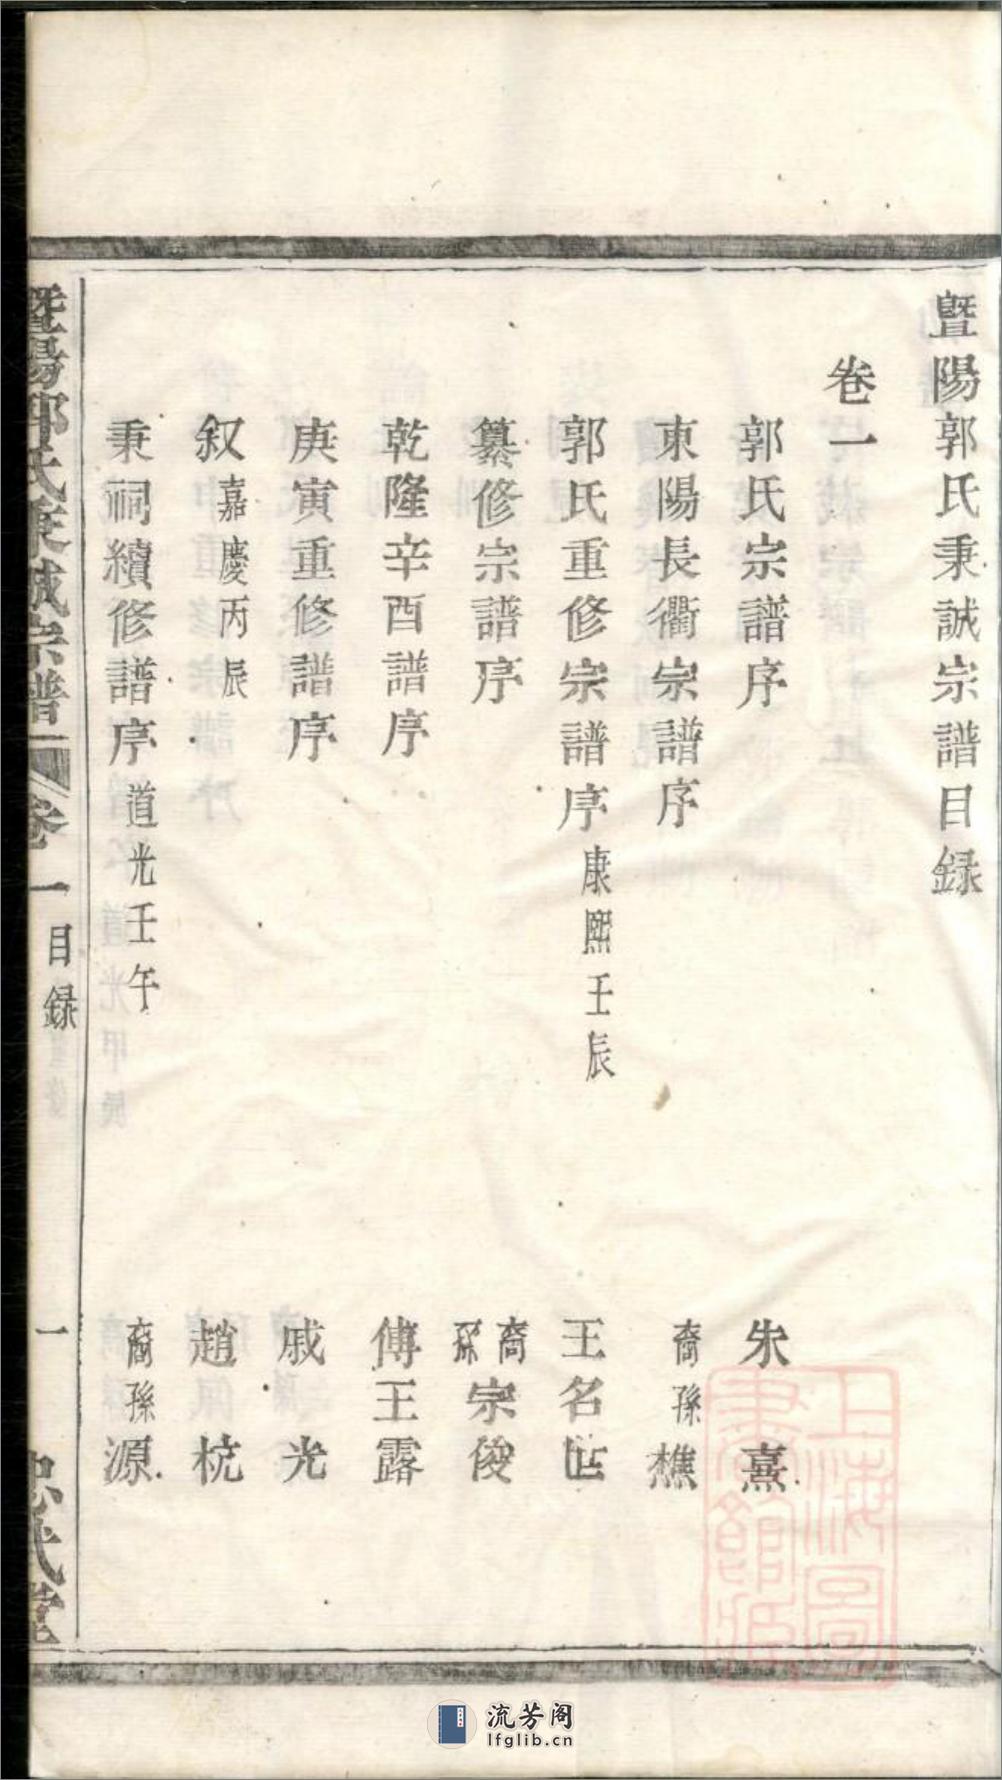 暨陽郭氏秉誠宗譜目録
卷一
郭氏宗譜序 朱熹
東陽長衢宗譜序 裔孫樵
郭氏重修宗譜序康熙壬辰 王名世
纂修宗譜序 裔孫宗俊
乾隆辛酉譜序 傅王露
庚寅重修譜序 戚光
叙嘉慶丙辰 趙佩栨
秉祠續修譜序道光壬午 裔孫源
暨陽郭氏秉誠宗譜 卷一 目録 一
上海圖書館藏
流芳阁
lfglib.cn